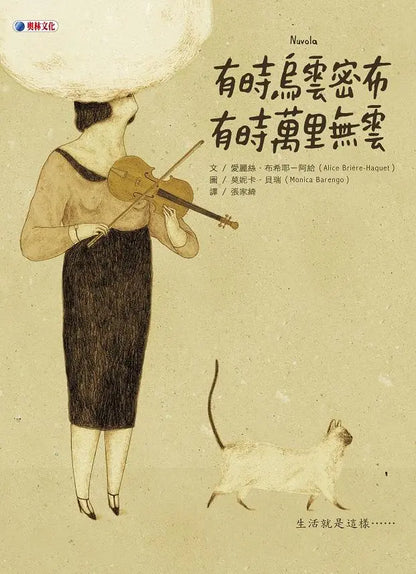 奧林文化
Nuvola
有時烏雲密布
有時萬里無雲
文／愛麗絲・布希耶－阿給（Alice Brière-Haquet）
圖／莫妮卡・貝瑞（Monica Barengo）
譯／張家綺
生活就是這樣……